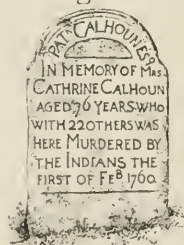 PAT^K CALHOUN ESQ
IN MEMORY OF MRS
CATHRINE CALHOUN
AGED 76 YEARS WHO
WITH 22 OTHERS WAS
HERE MURDERED BY
THE INDIANS THE
FIRST OF FEB 1760.